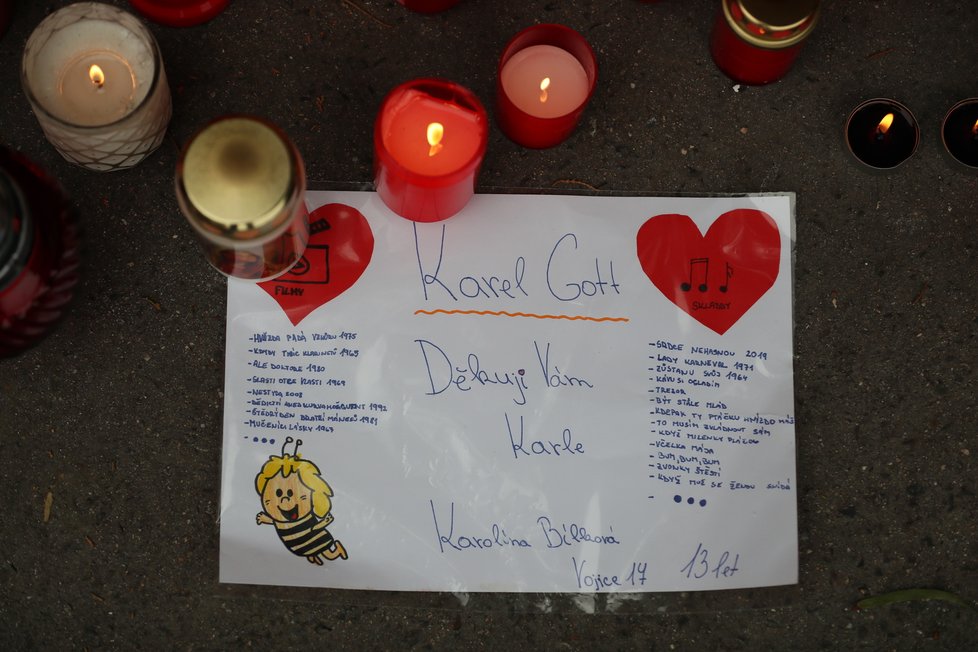 FILMY
- HVĚZDA PADÁ VZHŮRU 1975
- KDYBY TISÍC KLARINETŮ 1965
- ALE DOKTORE 1980
- SLASTI OTCE VLASTI 1969
- NESTYDA 2008
- DĚDICTVÍ ANEB KURVAHOŠIGUTNTAG 1992
- ŠTĚDRÝ DEN BRATŘÍ MÁNESŮ 1981
- MUČEDNÍCI LÁSKY 1967
- ...
Karel Gott
Děkuji Vám
Karle
Karolína Bílková
Vojice 17
13 let
SKLADBY
- SRDCE NEHASNOU 2019
- LADY KARNEVAL 1971
- ZŮSTANU SVŮJ 1964
- KÁVU SI OSLADÍM
- TREZOR
- BÝT STÁLE MLÁD
- KDEPAK TY PTÁČKU HNÍZDO MÁŠ
- TO MUSÍM ZVLÁDNOUT SÁM
- KDYŽ MILENKY PLÁČOU
- VČELKA MÁJA
- BUM, BUM, BUM
- ZVONKY ŠTĚSTÍ
- KDYŽ MUŽ SE ŽENOU SNÍDÁ
- ...